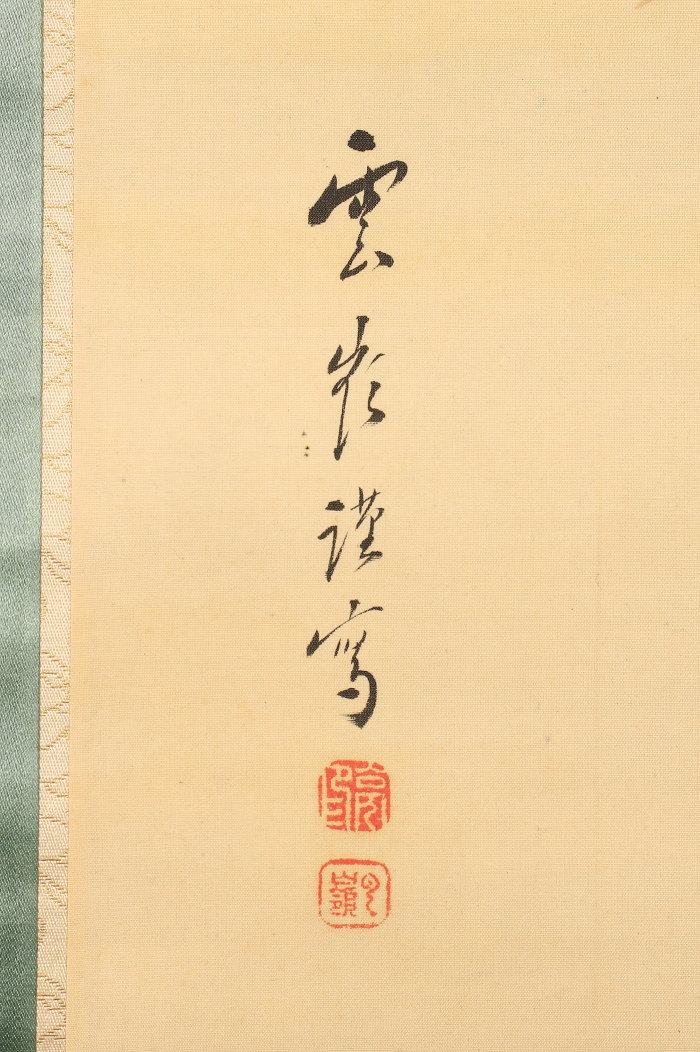 雲嶺謹寫
雲嶺